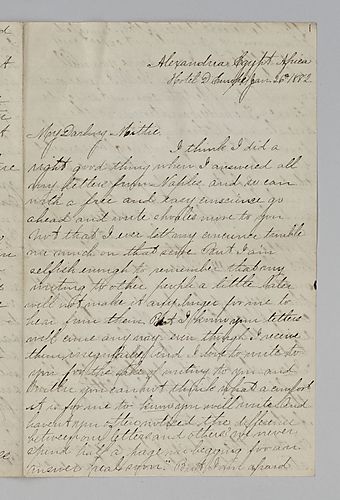 Alexandria Egypt. Africa
Hotel D'Europe Jan 26th 1882
My Darling Mittie.
I think I did a
right good thing when I answered all
my letters from Naples and so can
with a free and easy conscience go
ahead and write whole more to you
Not that I ever let my conscience trouble
me much on that score But I am
selfish enough to remember that my
writing to other people a little later
will not make it any longer for me to
hear from them But I know your letters
will come any way even though I receive
them irregularly and I love to write to
you for the sake of writing to you and
you can not think what a comfort
it is for me to know you will write And
haven't you often noticed the difference
between our letters and others we never
spend half a page in begging for an
answer "real soon." But I am afraid